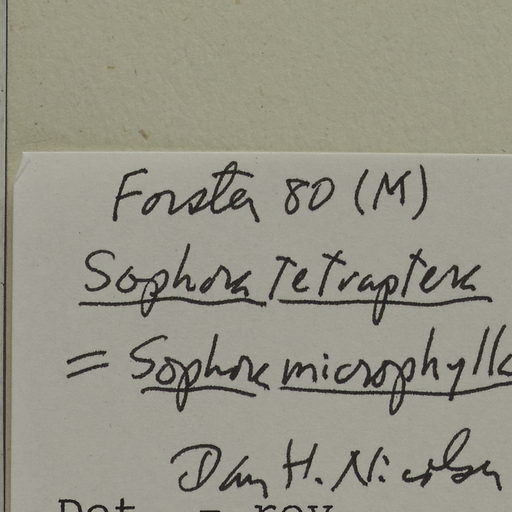 Forster 80 (M)
Sophora tetraptera
= Sophora microphylla
Dan H. Nicolson
Det. - rev.